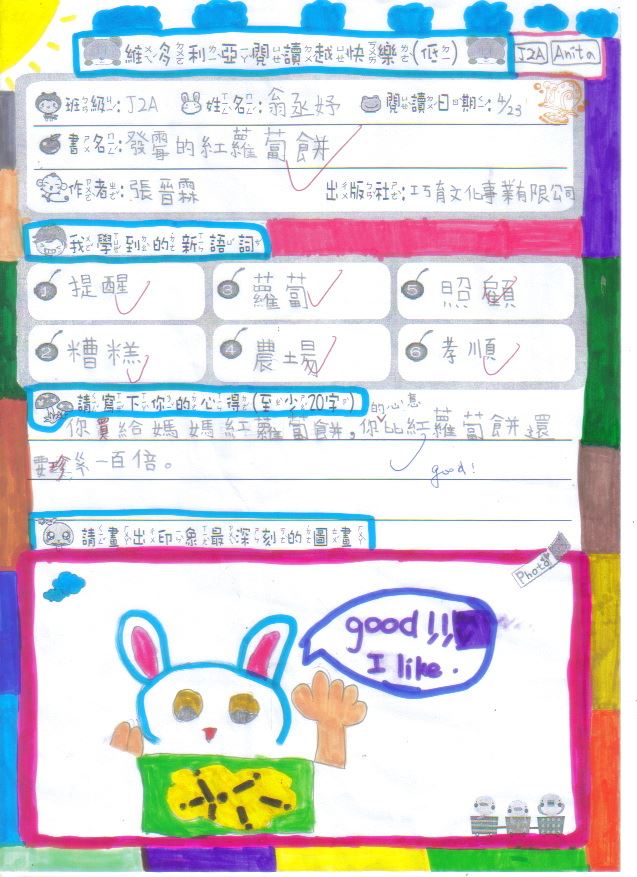 維多利亞閱讀越快樂(低) J2A Anita
班級:J2A 姓名:翁丞妤 閱讀日期:4/23
書名:發霉的紅蘿蔔餅
作者:張晉霖 出版社:巧育文化事業有限公司
我學到的新語詞
1 提醒 3 蘿蔔 5 照顧
2 糟糕 4 農場 6 孝順
請寫下你的心得(至少20字)
的心意
你買給媽媽紅蘿蔔餅,你比紅蘿蔔餅還
要珍 一百倍。
good!
請畫出印象最深刻的圖畫
Photo
good!!!
I like.